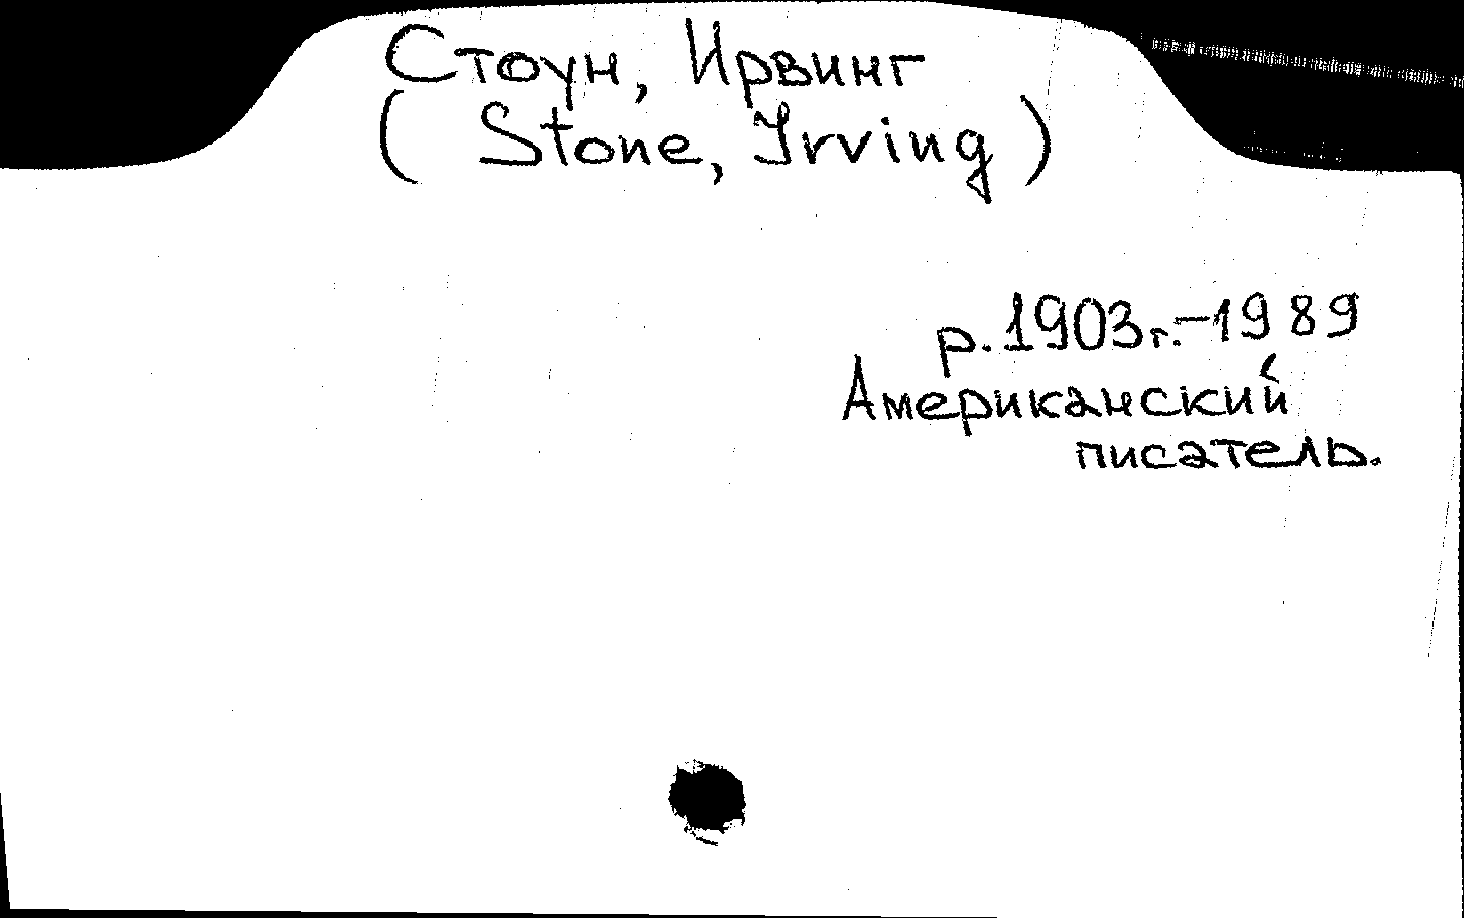 Стоун, Ирвинг
( Stone, Irving )
р. 1903г.-1989
Американский
писатель.